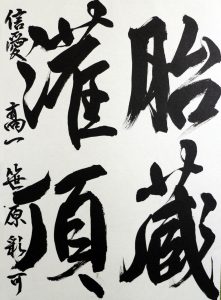 胎蔵
灌頂
信愛 高一 笹原彩可